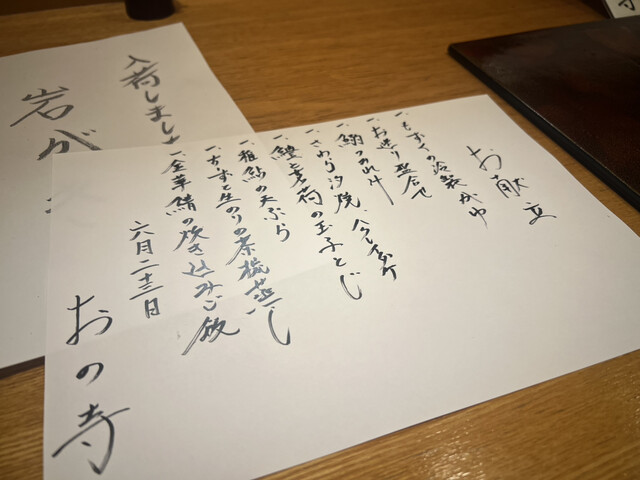 お献立
一、もずくの冷製がゆ
一、お造り盛合せ
一、鱧のお椀
一、さわら汐焼、
一、鱧と茗荷の玉子とじ
一、稚鮎の天ぷら
一、すずと生のりの茶椀蒸し
一、金華鯖の炊き込みご飯
六月二十三日
おの寺
入荷しました
岩が
寺